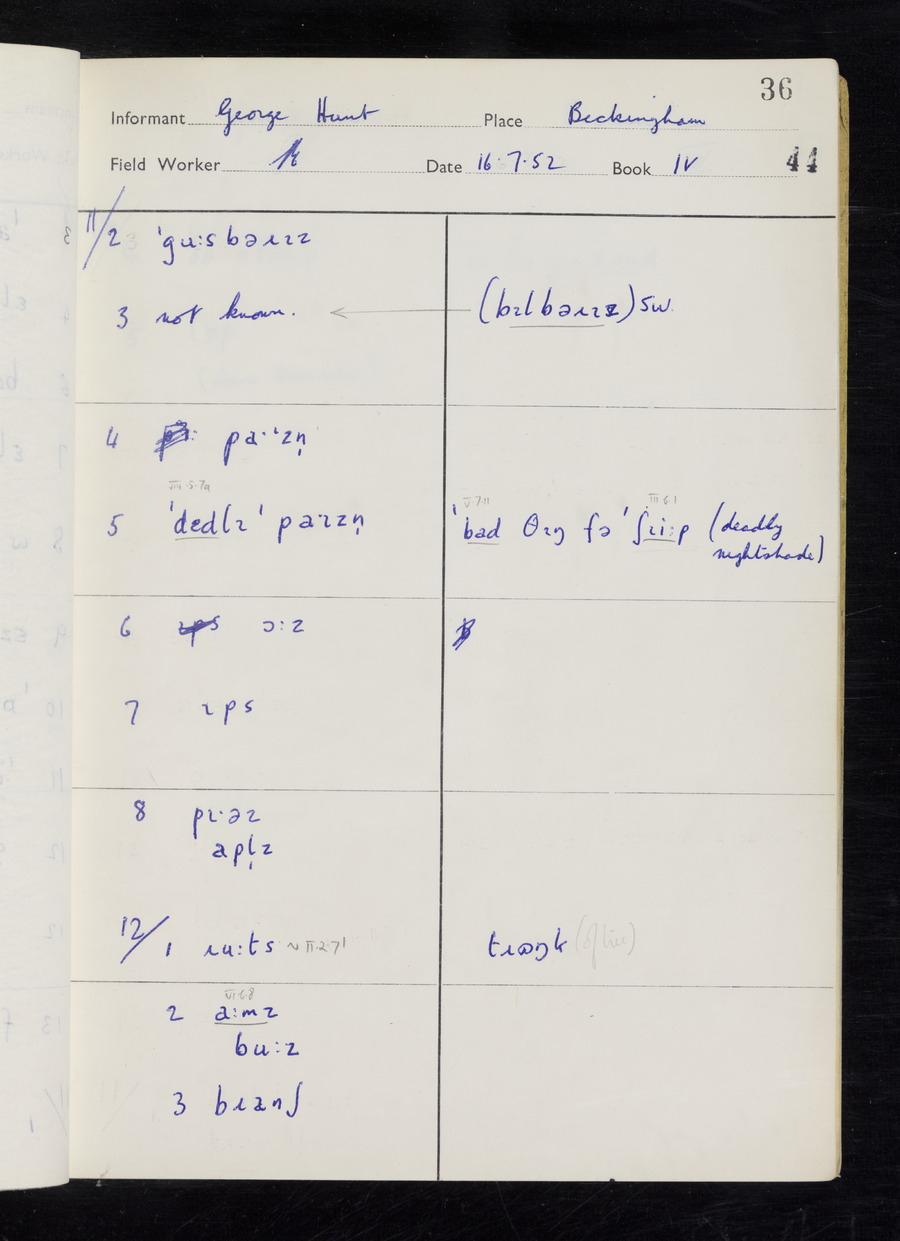 36
Informant George Hunt Place Beckingham
Field Worker Date 16.7.52 Book IV 44
11/2 ˈgu:sbəɹɪz
3 not known. ← (bɪlbəɹɪz) SW.
4 pa·ɪzn̩
VIII.5.7a V.7.11 III.6.1
5 ˈdedlɪˈ paɪzn̩ ˈbad θɪŋ fəˈʃɪi:p (deadly
nightshade)
6 ɔ:z
7 ɪps
8 pɪ·əz
apl̩z
12/1 ɹu:ts ~ II.2.7¹ tɹɷŋk (of tree)
VI.6.8
2 a:mz
bu:z
3 bɹanʃ